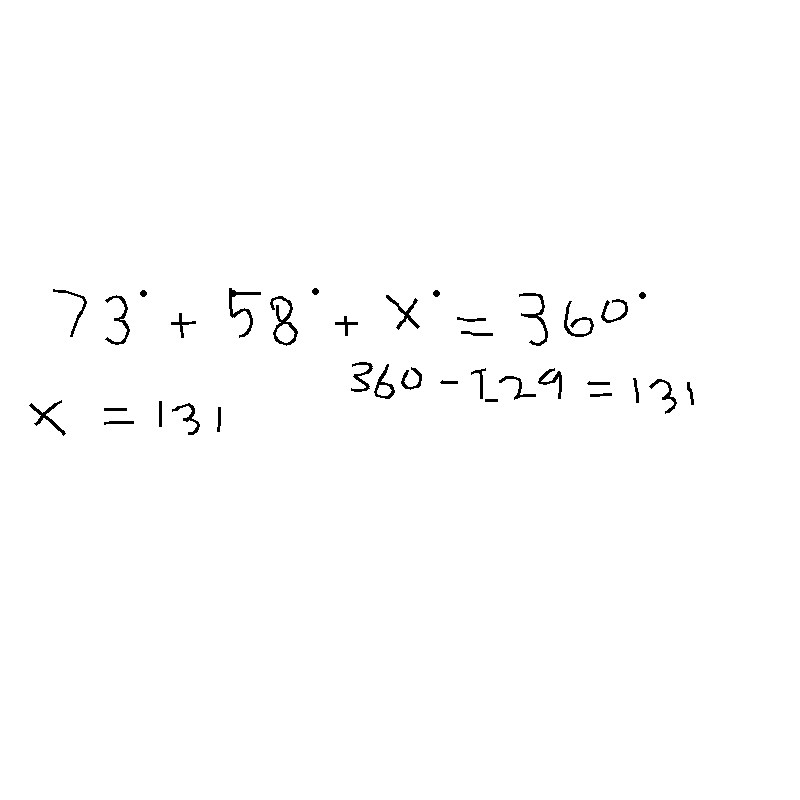 73° + 58° + x° = 360°
360 - 129 = 131
x = 131